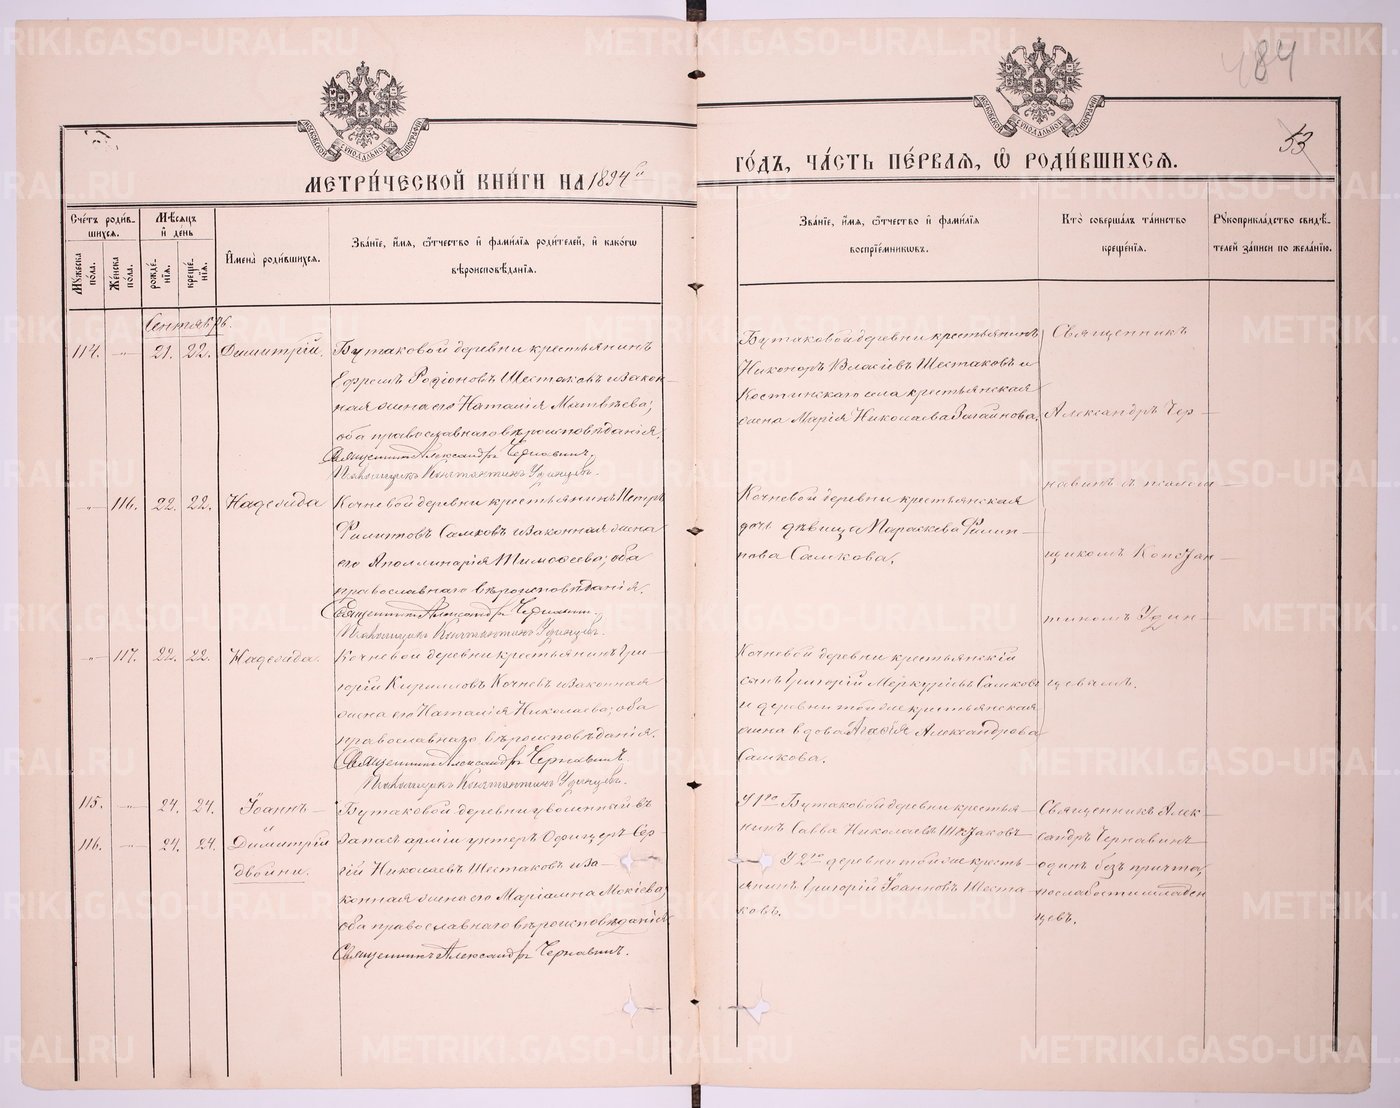 484
53
МЕТРИ́ЧЕСКОЙ КНИ́ГИ НА 1894й
ГО́ДЪ, ЧА́СТЬ ПЕ́РВАЯ, Ѡ҆ РОДИ́ВШИХСЯ.
МОСКОВСКОЙ СѴНОДАЛЬНОЙ ТИПОГРАФІИ
МОСКОВСКОЙ СѴНОДАЛЬНОЙ ТИПОГРАФІИ
Сче́тъ роди́вшихся.
Мꙋ́жеска по́ла.
Же́нска по́ла.
Мѣ́сяцъ и҆ день
рожде́нїя.
креще́нїя.
И҆мена̀ роди́вшихся.
Зва́нїе, и҆́мя, ѻ҆́тчество и҆ фами́лїя роди́телей, и҆ како́гѡ
вѣроисповѣ́данїя.
Зва́нїе, и҆́мя, ѻ҆́тчество и҆ фами́лїя
воспрїе́мникѡвъ.
Кто̀ соверша́лъ та́инство
креще́нїя.
Рꙋкоприкла́дство свидѣ́телей за́писи по жела́нїю.
Сентябрь.
114. „ 21. 22. Димитрій.
Бутаковой деревни крестьянинъ
Ефремъ Родіоновъ Шестаковъ и закон-
ная жена его Наталія Матвѣева;
оба православнаго вѣроисповѣданія.
Священникъ Александръ Чернавинъ.
Псаломщикъ Константинъ Удинцевъ.
Бутаковой деревни крестьянинъ
Никоноръ Власіевъ Шестаковъ и
Костинскаго села крестьянская
жена Марія Николаева Загайнова.
Священникъ
Александръ Чер-
навинъ съ псалом-
щикомъ Констан-
тиномъ Удин-
цевымъ.
„ 116. 22. 22. Надежда
Кочневой деревни крестьянинъ Петръ
Филипповъ Самковъ и законная жена
его Аполлинарія Тимоѳеева; оба
православнаго вѣроисповѣданія.
Священникъ Александръ Чернавинъ.
Псаломщикъ Константинъ Удинцевъ.
Кочневой деревни крестьянская
дочь дѣвица Параскева Филип-
пова Самкова.
„ 117. 22. 22. Надежда.
Кочневой деревни крестьянинъ Гри-
горій Кирилловъ Кочневъ и законная
жена его Наталія Николаева; оба
православнаго вѣроисповѣданія.
Священникъ Александръ Чернавинъ.
Псаломщикъ Константинъ Удинцевъ.
Кочневой деревни крестьянскій
сынъ Григорій Меркуріевъ Самковъ
и деревни той же крестьянская
жена вдова Агаѳія Александрова
Самкова.
115. „ 24. 24. Іоаннъ
и
116. „ 24. 24. Димитрій
двойни.
Бутаковой деревни уволенный въ
запасъ арміи унтеръ офицеръ Сер-
гій Николаевъ Шестаковъ и за-
конная жена его Маріамна Мокіева;
оба православнаго вѣроисповѣданія.
Священникъ Александръ Чернавинъ.
У 1го Бутаковой деревни крестья-
нинъ Савва Николаевъ Шестаковъ
У 2го деревни той же кресть-
янинъ Григорій Іоанновъ Шеста-
ковъ.
Священникъ Алек-
сандръ Чернавинъ
одинъ безъ причта,
по слабости младен-
цевъ.